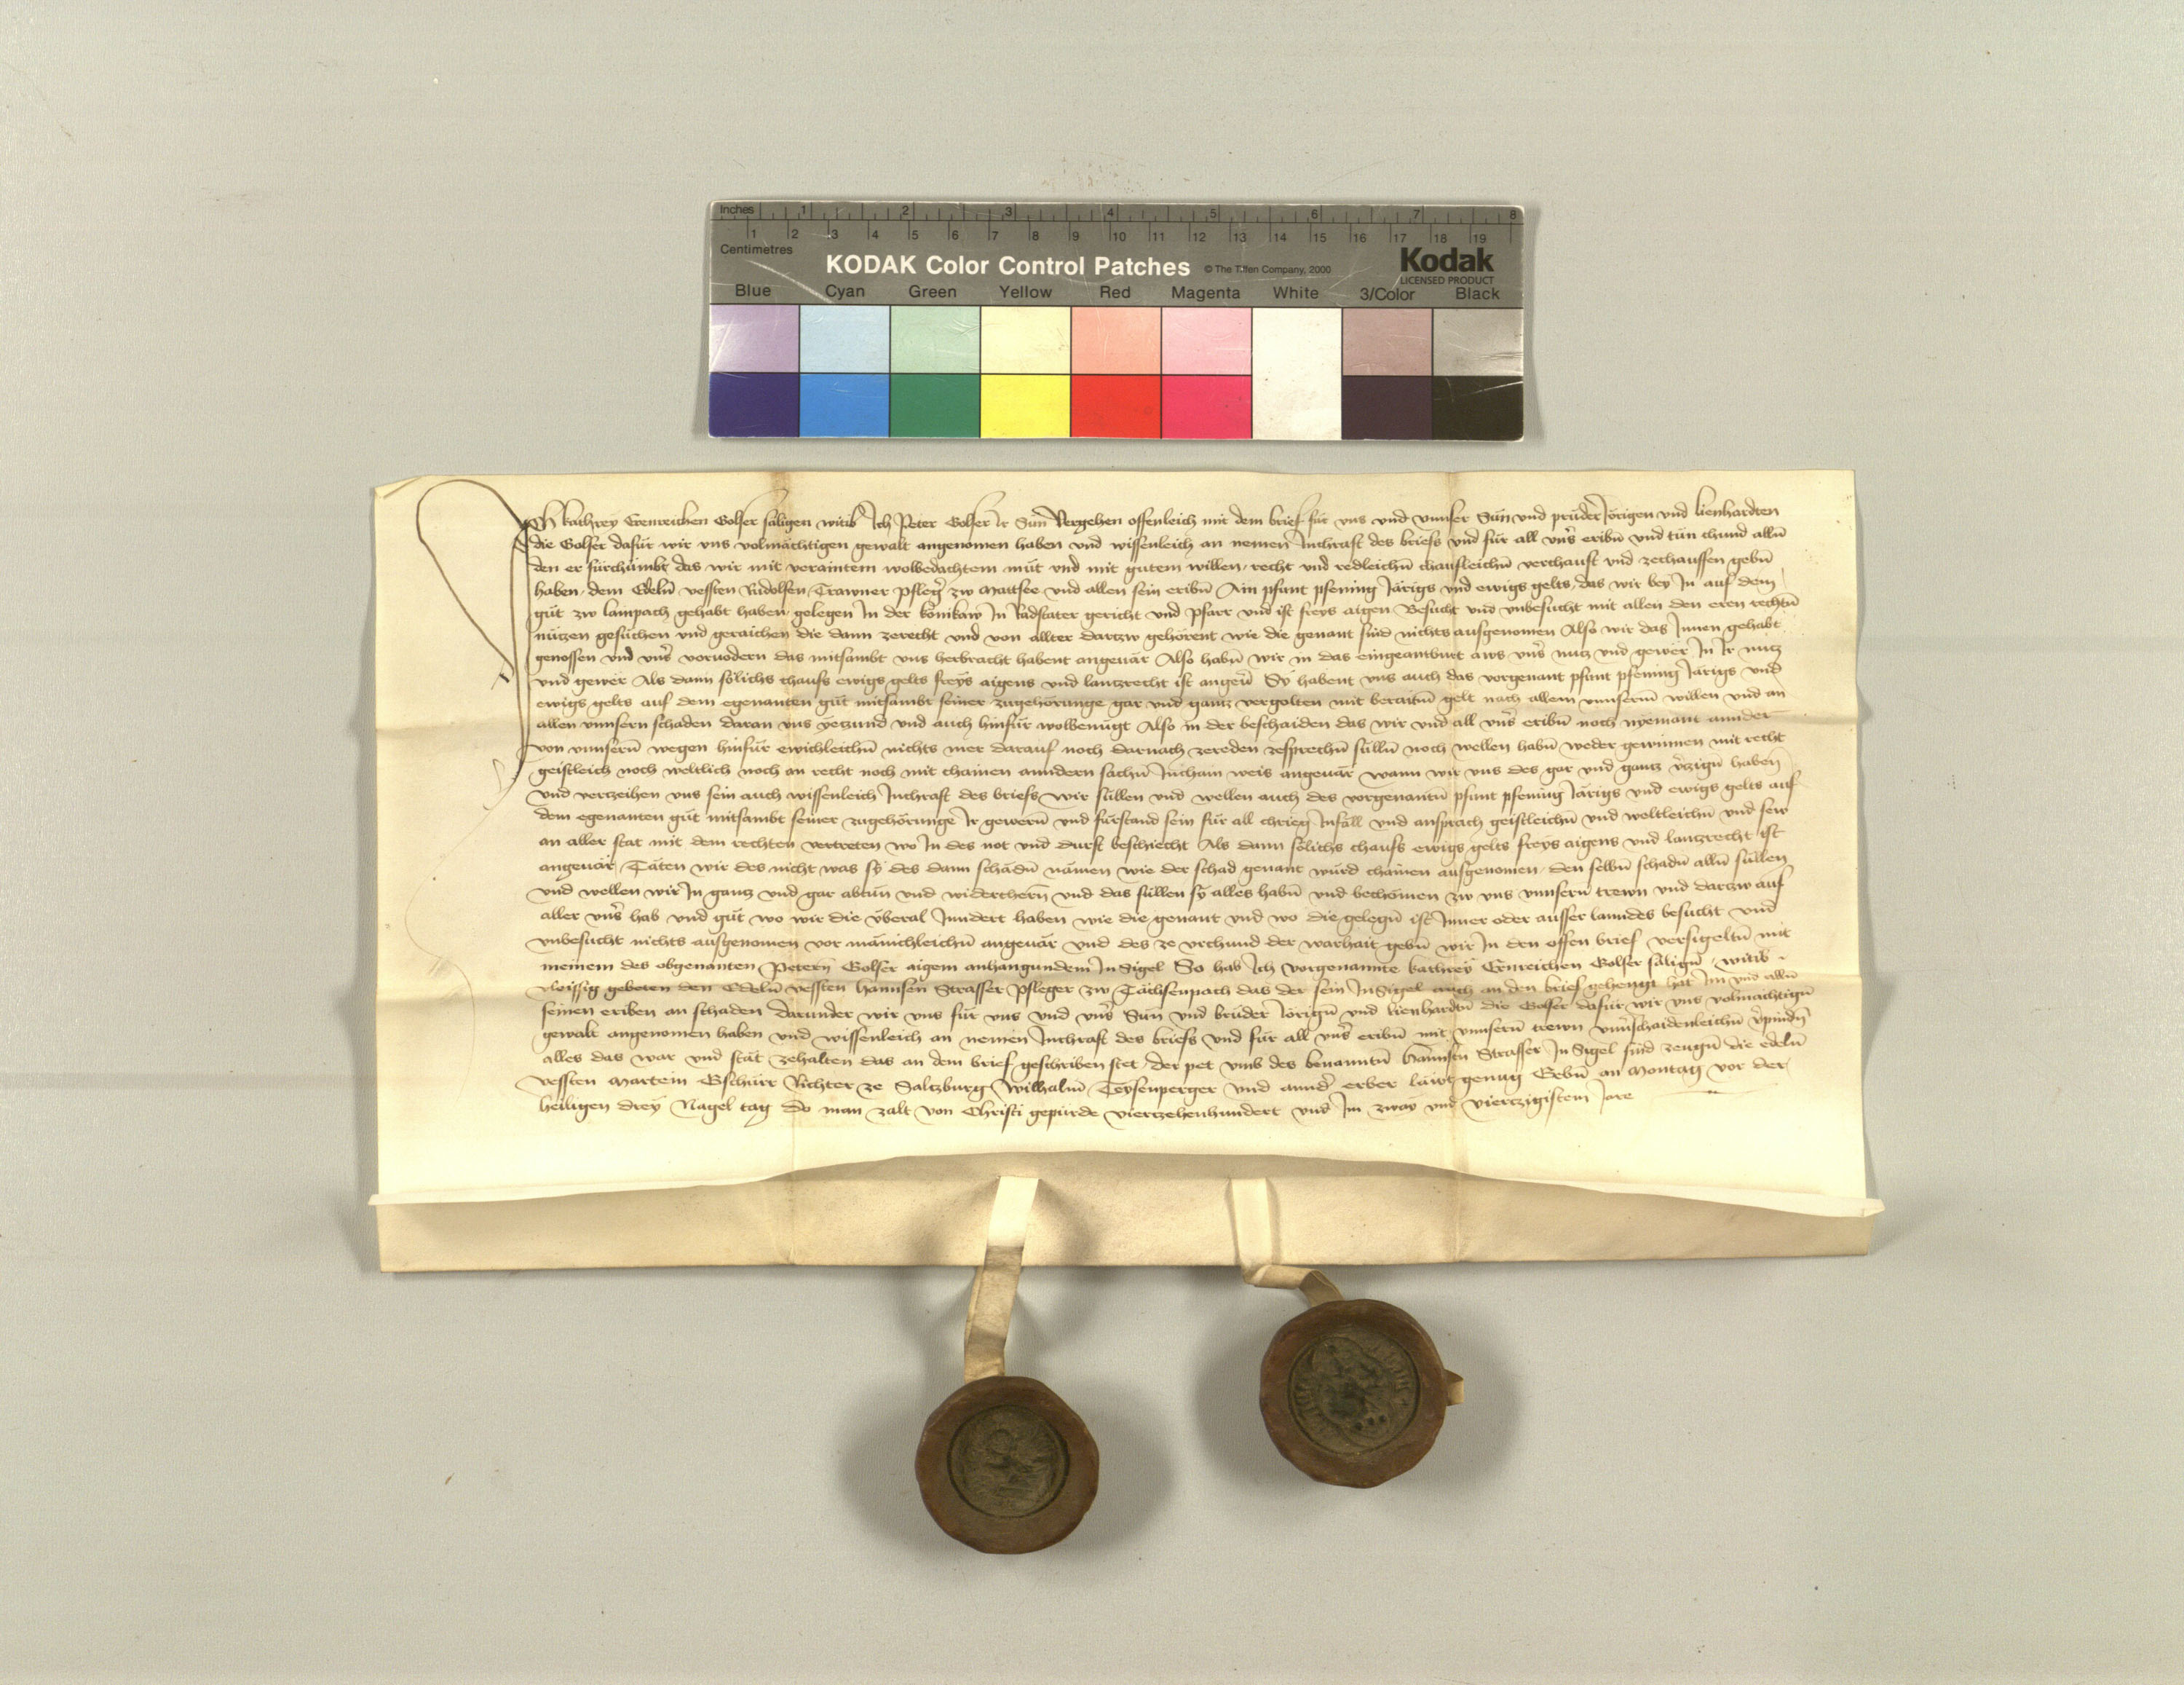 Inches 1 2 3 4 5 6 7 8
1 2 3 4 5 6 7 8 9 10 11 12 13 14 15 16 17 18 19
Centimetres
KODAK Color Control Patches © The Tiffen Company, 2000 Kodak
LICENSED PRODUCT
Blue Cyan Green Yellow Red Magenta White 3/Color Black
Ich kathrey Erenreichen Golser säligen witib Ich Peter Golser Ir Sun Vergehen offenleich mit dem brief für vns vnd vnnser Sün vnd prüder Jörigen vnd Lienhardten
die Golser dafür wir vns volmächtigen gewalt angenomen haben vnd wissenleich an nemen Inchraft des briefs vnd für all vnˢ eribn̄ vnd tün chund alln̄
den er fürchümbt das wir mit veraintem wolbedachtem müt vnd mit gutem willen recht vnd redleichn̄ chaufleichn̄ verchauft vnd zechauffen gebn̄
haben dem Edeln̄ vessten Rudolfen Trawner Pflegˢ zw Mattsee vnd allen sein eribn̄ Ain pfunt pfening Järigs vnd ewigs gelts das wir bey In auf dem
güt zw lainpach gehabt haben gelegen In der konikaw In Radstater gericht vnd Pfarr vnd ist freys aigen Besucht vnd vnbesucht mit allen den eren rechtn̄
nützen gesüchen vnd geraichen die dann zerecht vnd von allter dartzw gehörent wie die genant sind nichts ausgenomen Also wir das Innen gehabt
genossen vnd vnˢ voruodern das mitsambt vns herbracht habent angeuär Also habn̄ wir in das eingeantburt aws vnˢ nutz vnd gewer In Ir nutz
vnd gewer Als dann sölichs chaufs ewigs gelts freys aigens vnd lantzrecht ist angeuˢ Sy habent vns auch das vorgenant pfunt pfening Järigs vnd
ewigs gelts auf dem egenanten güt mitsambt seiner zugehörunge gar vnd gantz vergolten mit beraitn̄ gelt nach allem vnnsern̄ willen vnd an
allen vnnsern schaden daran vns yetzund vnd auch hinfür wolbenügt Also in der beschaiden das wir vnd all vnˢ eribn̄ noch nyemant annder
von vnnsern̄ wegen hinfür ewichleichn̄ nichts mer darauf noch darnach zereden zesprechn̄ sülln̄ noch wellen habn̄ weder gewinnen mit recht
geistleich noch weltlich noch an recht noch mit chainen anndern sachn̄ Inchain weis angeuär wann wir vns des gar vnd gantz vˢzign̄ haben
vnd vertzeihen vns sein auch wissenleich Inchraft des briefs wir süllen vnd wellen auch des vorgenantn̄ pfunt pfening Järigs vnd ewigs gelts auf
dem egenanten güt mitsambt seiner zugehörunge Ir gewern̄ vnd fürstand sein für all chrieg Infäll vnd ansprach geistleichn̄ vnd weltleichn̄ vnd sew
an aller stat mit dem rechten vertreten wo In des not vnd durft beschiecht Als dann sölichs chaufs ewigs gelts freys aigens vnd lantzrecht ist
angeuär Täten wir des nicht was sy des dann schädn̄ nämen wie der schad genant würd chainen ausgenomen den selbn̄ schadn̄ alln̄ süllen
vnd wellen wir In gantz vnd gar abtün vnd widerchern̄ vnd das süllen sy alles habn̄ vnd bechömen zw vns vnnsern̄ trewn vnd dartzw auf
aller vnˢ hab vnd güt wo wir die vberal Inndert haben wie die genant vnd wo die gelegn̄ ist Inner oder ausser lanndes besucht vnd
vnbesucht nichts ausgenomen vor mänichleichn̄ angeuär vnd des ze vrchund der warhait gebn̄ wir In den offen brief versigeltn̄ mit
meinem des obgenanten Petern̄ Golser aigem anhangundem InSigel So hab Ich vorgenannte kathrey Ernreichen Golser sälign̄ witib
vleissig gebeten den Edeln̄ vessten Hannsen Strasser Pfleger zw Tächsenpach das der sein InSigel auch an den brief gehengt hat Im vnd alln̄
seinen eriben an schaden darunder wir vns für vns vnd vnˢ Sün vnd brüder Jörign̄ vnd Lienhardtn̄ die Golser dafür wir vns volmächtign̄
gewalt angenomen haben vnd wissenleich an nemen Inchraft des briefs vnd für all vnˢ eribn̄ mit vnnsern̄ trewn vnuˢschaidenleichn̄ vˢpindn̄
alles das war vnd stät zehalten das an dem brief geschriben stet der pet vmb des benanntn̄ Hannsen Strasser InSigel sind zeugn̄ die edeln̄
vessten Martein Gschürr Richter ze Saltzburg Wilhalm̄ Teysenperger vnd anndˢ erber läwt genug Gebn̄ an Montag vor der
heiligen drey Nagel tag do man zalt von Christi gepürde viertzehenhundert vnd Im zway vnd viertzigistem Jare